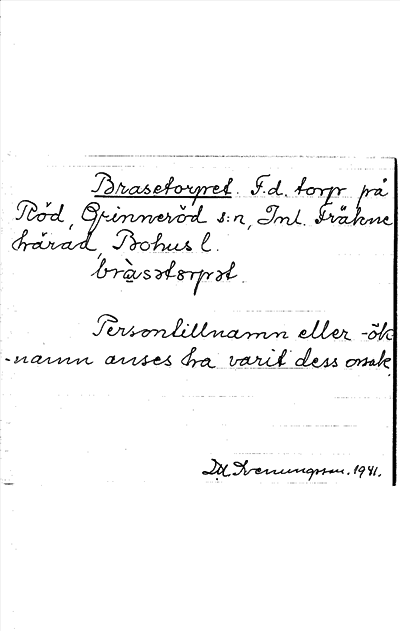 Brasetorpet. F.d. torp på
Röd, Grinneröd s:n, Inl. Fräkne
härad, Bohus l.
bràsətɷrpət.
Persontillnamn eller -ök
-namn anses ha varit dess orsak.
1941.